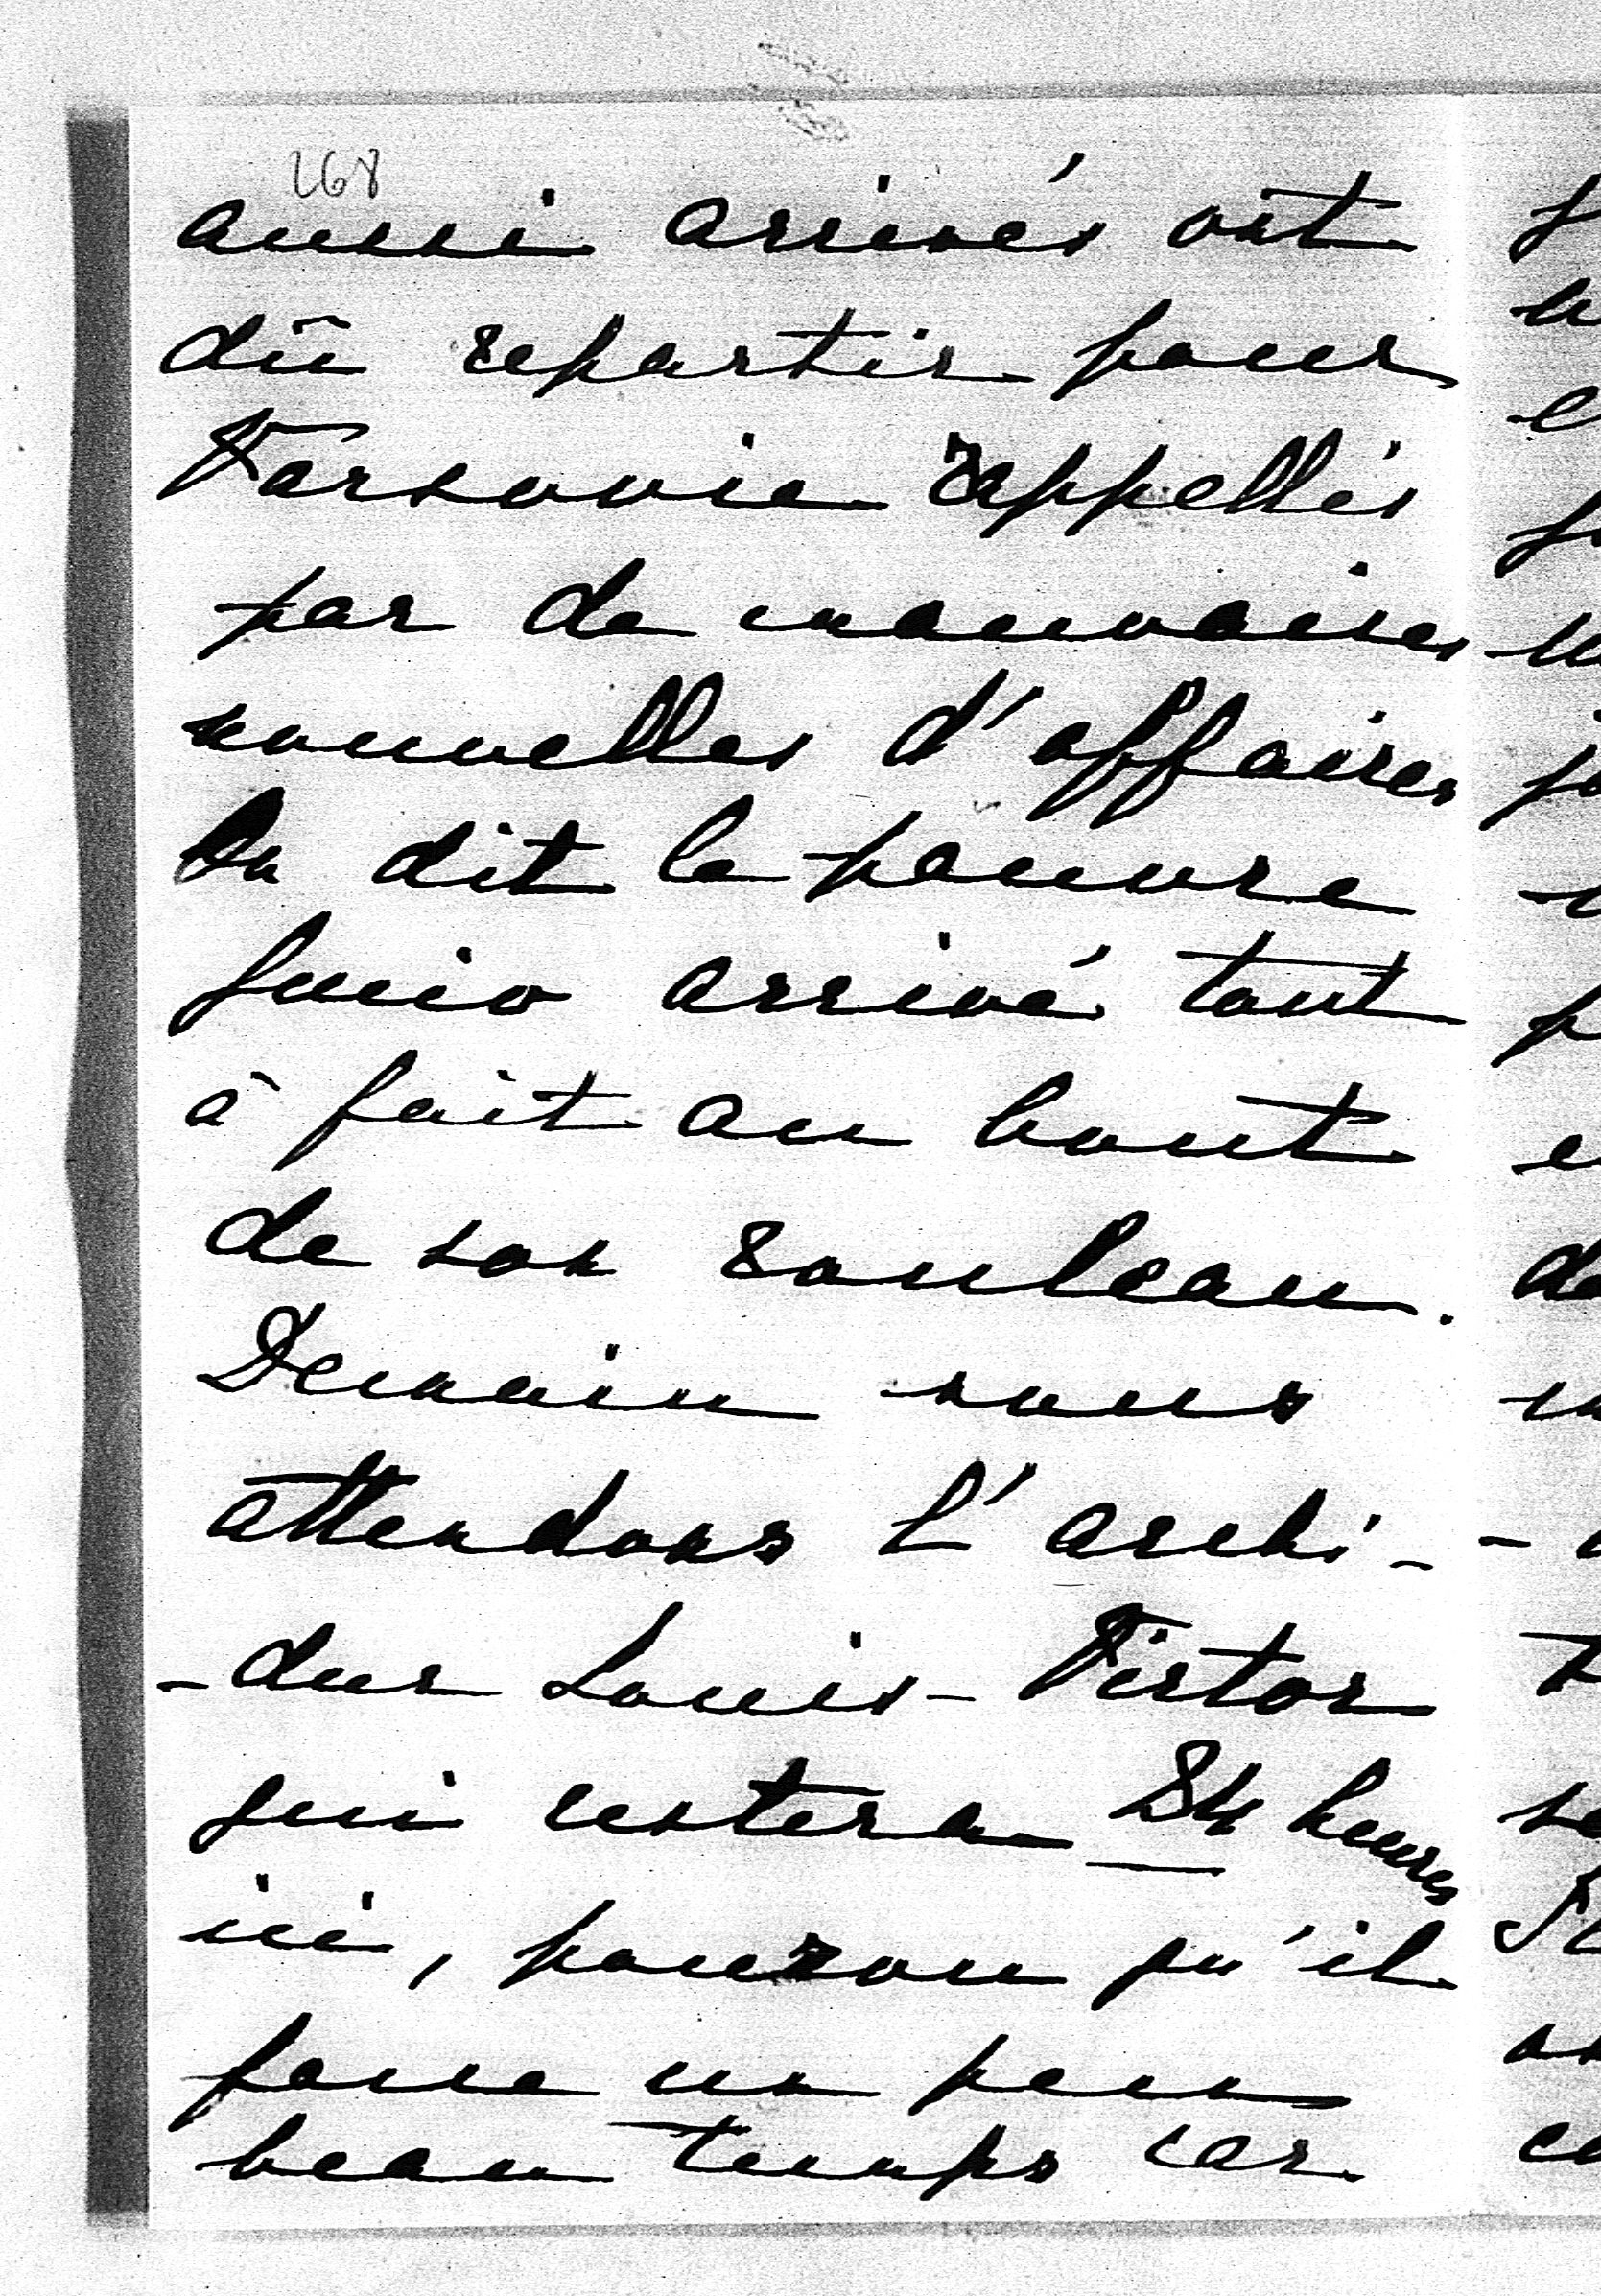 268
aussi arrivés ont
dû repartir pour
Varsovie rappellés
par de mauvaises
nouvelles d'affaires
On dit le pauvre
arrivé tout
à fait au bout
de son rouleau.
Demain nous
attendons l'archi-
-duc Louis-Victor
qui restera 24 heures
ici, pourvou qu'il
fasse un peu
beau temps car